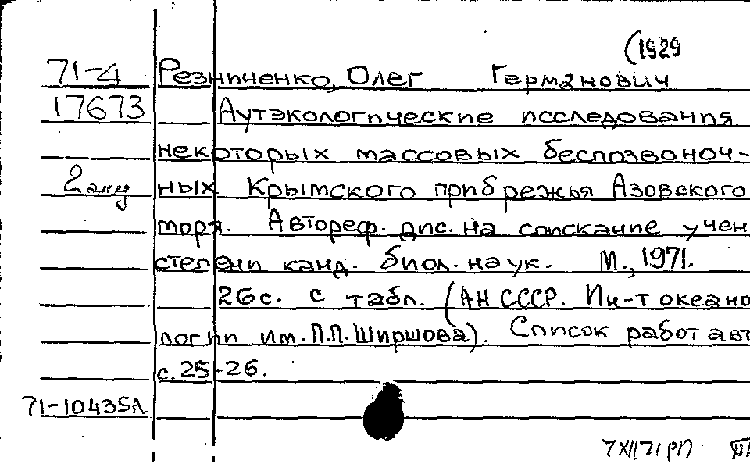 (1929
71-4 Резниченко, Олег Германович
17673 Аутэкологические исследования
некоторых массовых беспозвоноч-
2 экз ных Крымского прибрежья Азовского
моря. Автореф. дис. на соискание учен
степени канд. биол. наук. М., 1971.
26с. с табл. (АН СССР. Ин-т океано
логии им. П.П. Ширшова). Список работ авт
с. 25-26.
71-10435А